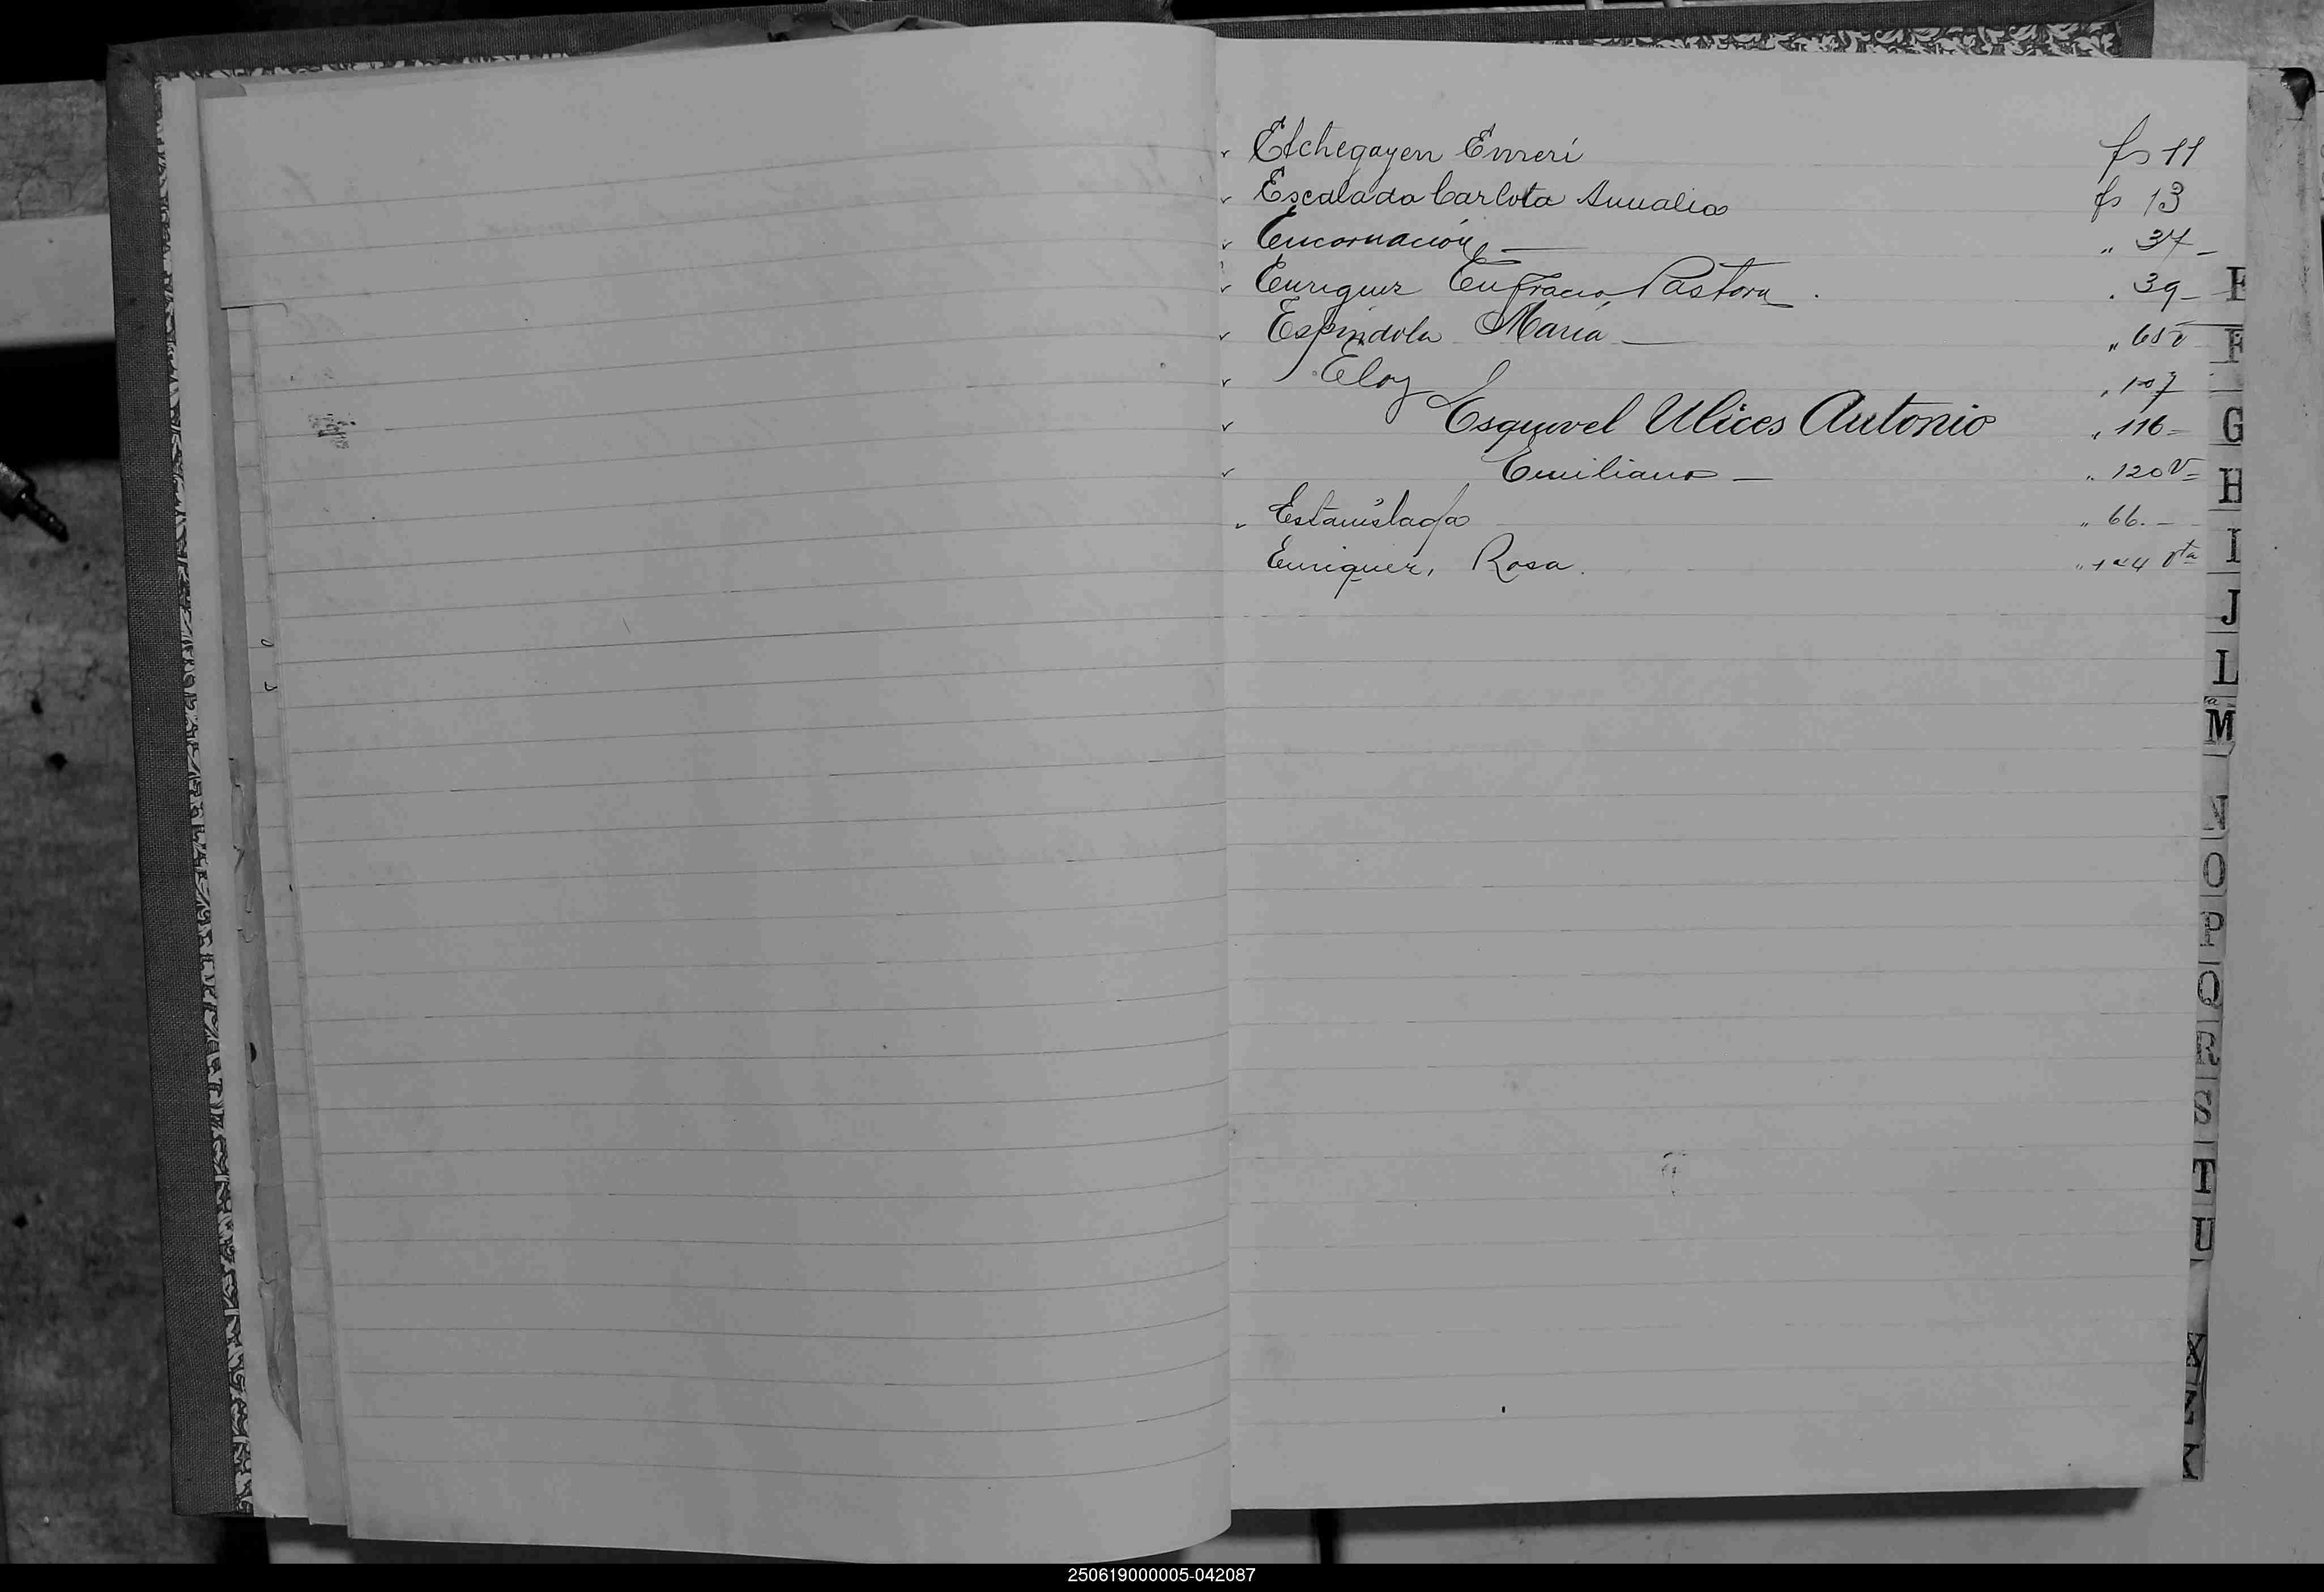 Etchegoyen Enreri fs 11
Escalada Carlota Amalia fs 13
Encarnación — " 37 -
Enriquez Eufracia Pastora . " 39 -
Espíndola María — " 65 v
Eloy " 107
Esquivel Ulices Antonio " 116 =
Emiliano — " 120 V =
Estanislada " 66. -
Enriquez, Rosa. " 124 Vta
E
F
G
H
I
J
L
M
N
O
P
Q
R
S
T
U
X
Z
250619000005-042087